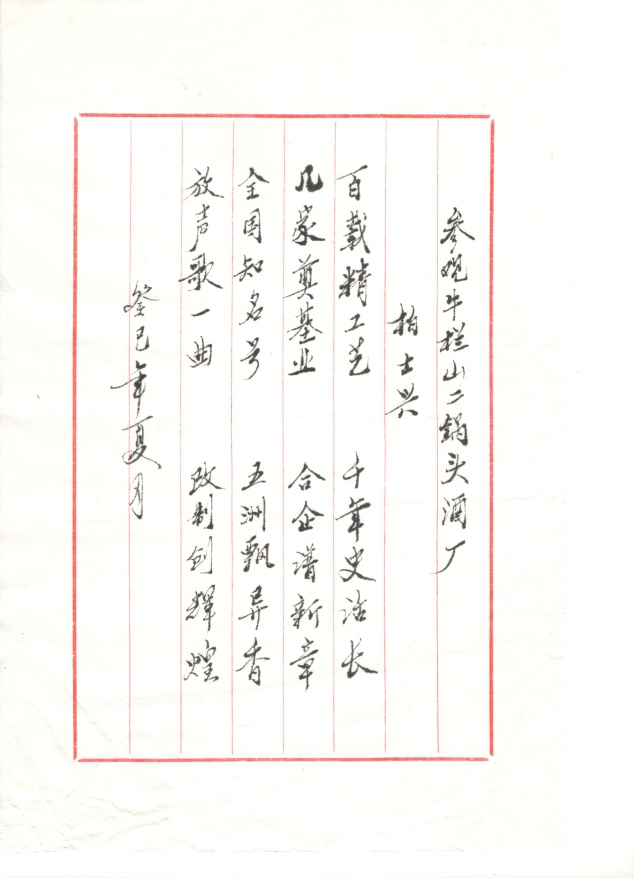 参观牛栏山二锅头酒厂
柏士兴
百载精工艺 千年史话长
几家奠基业 合企谱新章
全国知名号 五洲飘异香
放声歌一曲 改制创辉煌
癸巳年夏月